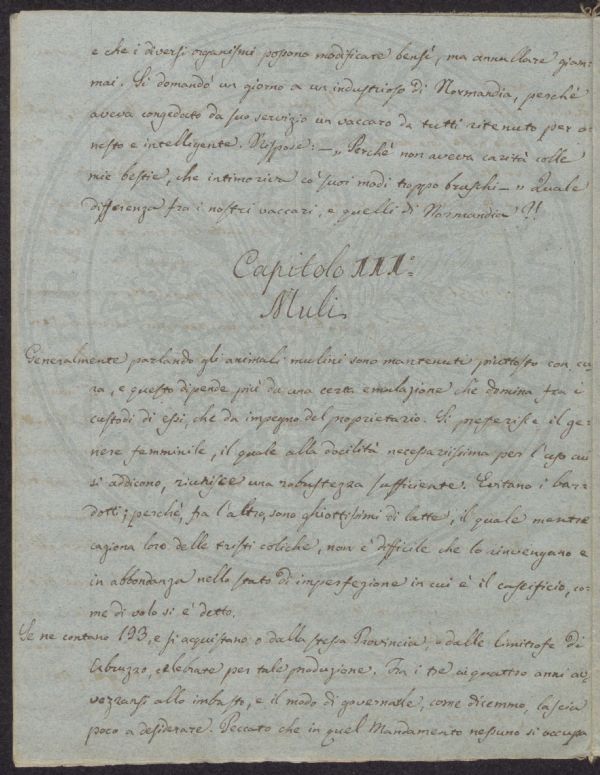 e che i diversi organismi possono modificare bensì, ma annullare giam=
mai. Si domandò un giorno a un industrioso di Normandia, perchè
aveva congedato da suo servizio un vaccaro da tutti ritenuto per o=
nesto e intelligente. Rispose: — „ Perchè non aveva carità colle
mie bestie, che intimoriva co' suoi modi troppo bruschi — „ Quale
differenza fra i nostri vaccari, e quelli di Normandia?!!
Capitolo III°
Muli
Generalmente parlando gli animali mulini sono mantenuti piuttosto con cu
ra, e questo dipende più da una certa emulazione che domina fra i
custodi di essi, che da impegno del proprietario. Si preferisce il ge=
nere femminile, il quale alla docilità necessariissima per l'uso cui
si addicono, riunisce una robustezza sufficiente. Evitano i bar=
dotti; perchè, fra l'altro, sono ghiottissimi di latte, il quale mentre
cagiona loro delle tristi coliche, non è difficile che lo rinvengano e
in abbondanza nello stato di imperfezione in cui è il caseificio, co=
me di volo si è detto.
Se ne contano 193, e si acquistano o dalla stessa Provincia, o dalle limitrofe di
Abruzzo, celebrate per tale produzione. Fra i tre ai quattro anni av=
vezzansi allo imbasto, e il modo di governarle, come dicemmo, lascia
poco a desiderare. Peccato che in quel Mandamento nessuno si occupa